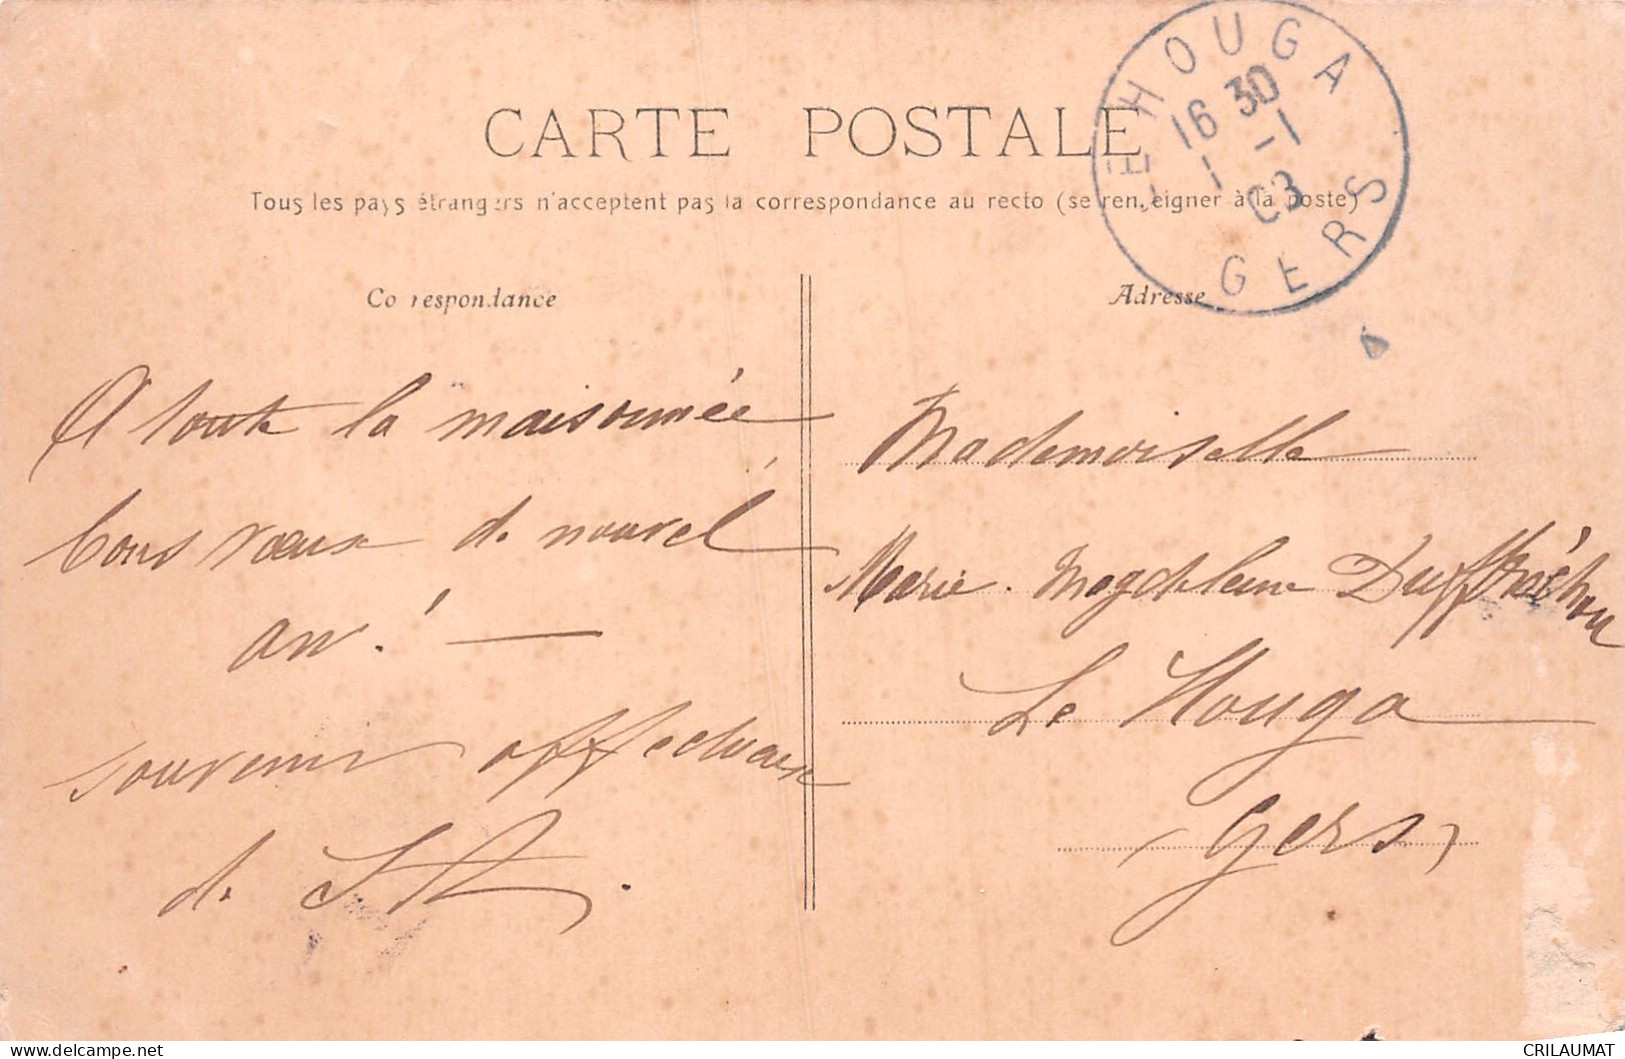 CARTE POSTALE
Tous les pays étrangers n'acceptent pas la correspondance au recto (se renseigner à la poste)
LE HOUGA
16 30
1 -1
03
GERS
Correspondance
A toute la maisonnée
bons vœux de nouvel
an! —
souvenir affectueux
de
Adresse
Mademoiselle
Marie-Magdeleine Duffréchou
Le Houga
(Gers)
CRILAUMAT